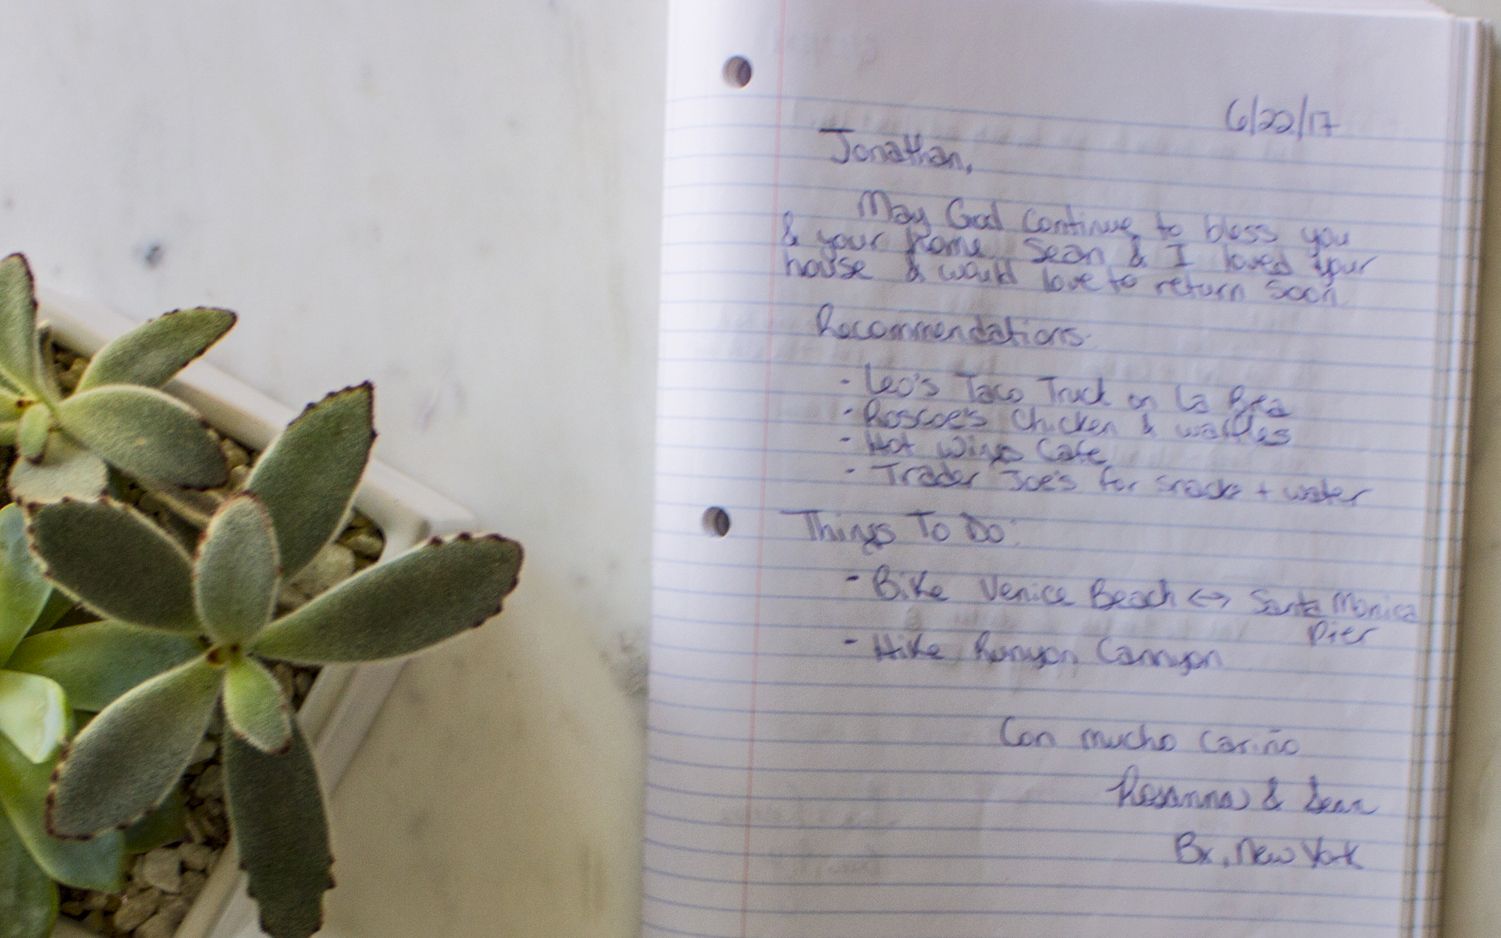 6/22/17
Jonathan,
May God continue to bless you
& your home. Sean & I loved your
house & would love to return soon.
Recommendations:
- Leo's Taco Truck on La Brea
- Roscoe's Chicken & waffles
- Hot Wings Cafe
- Trader Joe's for snacks + water
Things To Do:
- Bike Venice Beach <-> Santa Monica
Pier
- Hike Runyon Cannyon
Con mucho cariño
Rosanna & Sean
Bx, New York